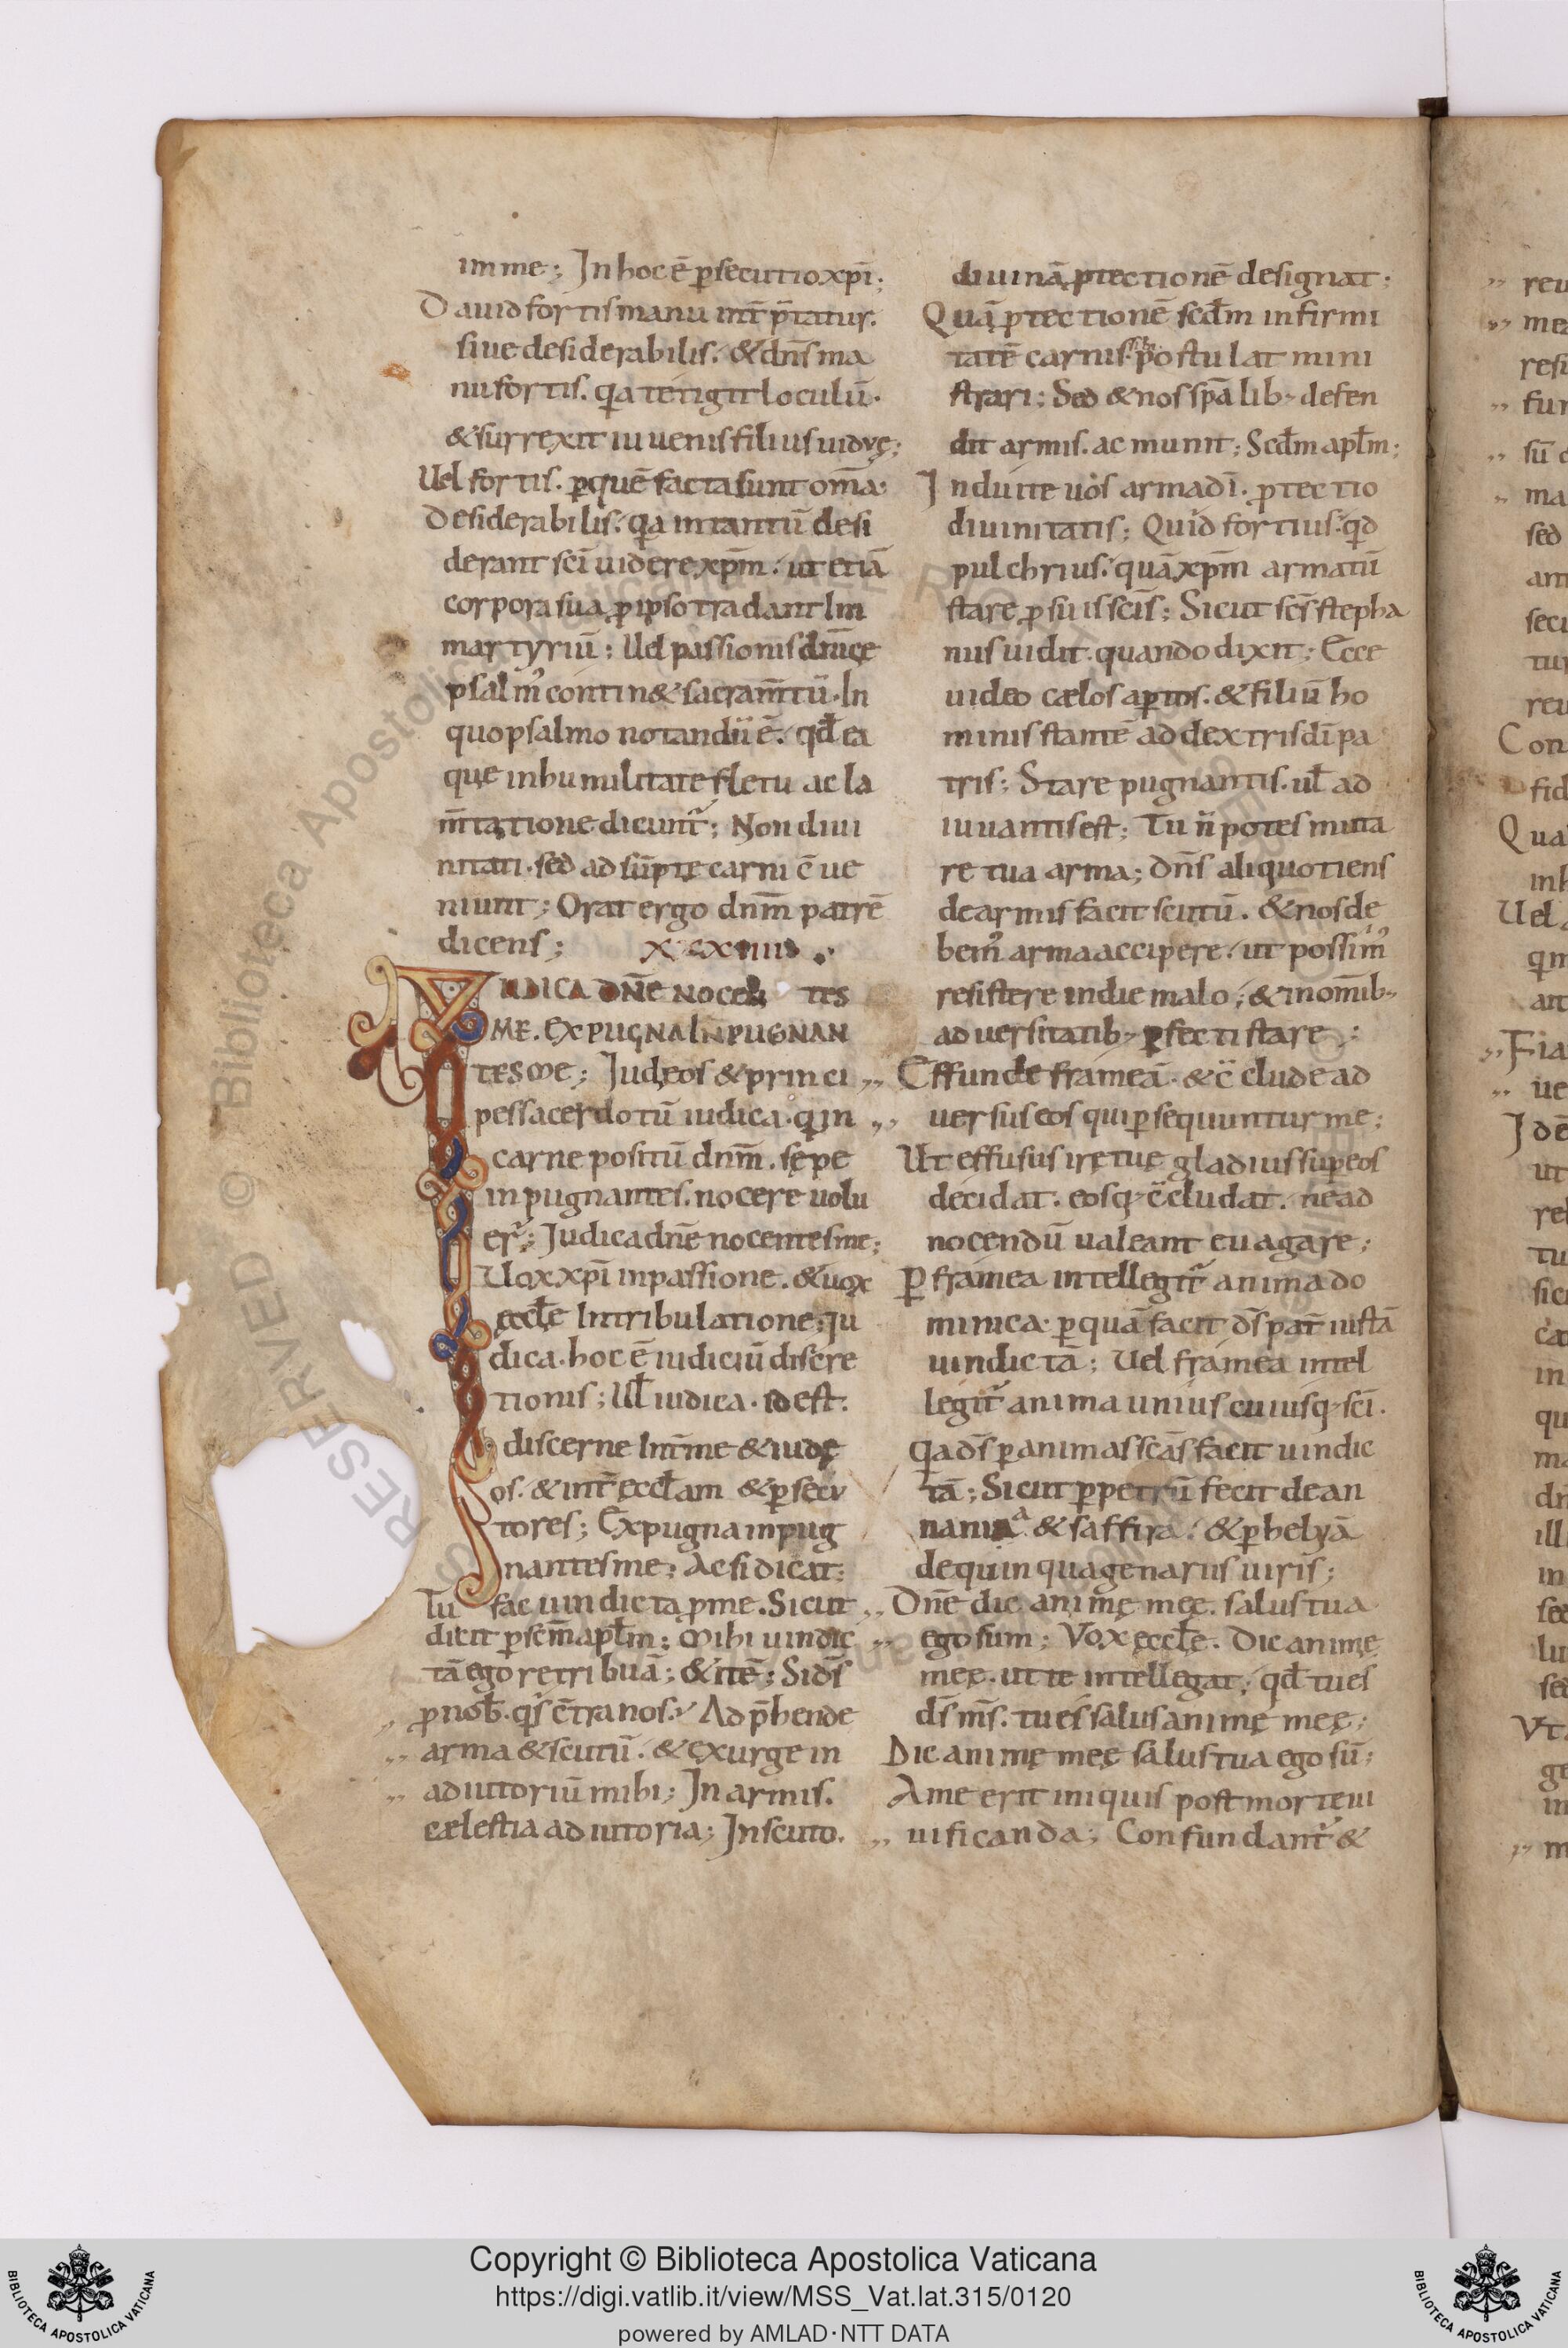 im me; In hoc ē ꝑsecutio xp̄i;
Dauid fortis manu int̄ p̄tatur.
siue desiderabilis. & dn̄s ma
nu fortis. qa tetigit loculū.
& surrexit iuuenis filius uiduę;
Uel fortis. ꝑ quē facta sunt om̄a.
Desiderabilis. qa intantū desi
derant sc̄i uidere xp̄m. ut etiā
corpora sua ꝓ ipso tradant In
martyriū; Uel passionis dn̄icę
psalm' contin& sacram̄tū. In
quo psalmo notandū ē. qđ ea
quę in humilitate fletu ac la
m̄tatione dicunt̄; Non diui
nitati. sed adsūptę carni c̄ue
niunt; Orat ergo dnm̄ patrē
dicens; XXXIIII.
IUDICA DN̄E NOCEN TES
ME. EXPUGNA INPUGNAN
TES ME; Iudęos & princi
pes sacerdotū iudica. qi in
carne positū dnm̄. sępe
inpugnantes. nocere uolu
er̄; Iudica dn̄e nocentes me;
Uox xp̄i in passione. & uox
ęccłę In tribulatione; Iu
dica. hoc ē iudiciū discre
tionis; Uł iudica. id est.
discerne Int̄ me & iudę
os. & int̄ ęccłam & ꝑsecu
tores; Expugna inpug
nantes me; Ac si dicat;
Tu fac uindictā ꝓ me. Sicut
dicit ꝑ scm̄ apłm; Mihi uindic
tā ego retribuā; & itē; Si d̄s
ꝓ nob̄. qs c̄tra nos. Adp̄hende
arma & scutū. & exurge in
adiutoriū mihi; In armis.
cælestia adiutoria; In scuto.
diuinā ꝓtectionē designat;
Quā ꝓtectionē scđm infirmi
tatē carnis. sibi postulat mini
strari; Sed & nos sp̄alib; defen
dit armis. ac munit; Scđm apłm;
Induite uos arma dī. ꝓtectio
diuinitatis; Quid fortius. qd
pulchrius. quā xp̄m armatū
stare ꝓ suis sc̄is; Sicut sc̄s stepha
nus uidit. quando dixit; Ecce
uideo cælos aꝑtos. & filiū ho
minis stantē ad dextris dī pa
tris; Stare pugnantis. uł ad
iuuantis est; Tu n̄ potes muta
re tua arma; dn̄s aliquotiens
de armis facit scutū. & nos de
bem' arma accipere. ut possim'
resistere in die malo; & in om̄ib;
aduersitatib; ꝑfecti stare;
Effunde frameā. & c̄clude ad
uersus eos qui ꝑsequuntur me;
Ut effusus irę tuę gladius suꝑ eos
decidat. eosq; c̄cludat. ne ad
nocendū ualeant euagare;
Ꝑ framea intellegit̄ anima do
minica. ꝑ quā facit d̄s pat̄ iustā
uindictā; Uel framea intel
legit̄ anima unius cuiusq; sc̄i.
Qa d̄s ꝑ animas sc̄as facit uindic
tā; Sicut ꝑ petrū fecit de an
nania & saffira. & ꝑ helyā
de quinquagenariis uiris;
Dn̄e dic animę meę. salus tua
ego sum; Vox ęccłę. Dic animę
meę. ut te intellegat. qđ tu es
d̄s m̄s. tu es salus animę meę;
Dic animę meę salus tua ego sū;
A me erit iniquis post mortē ui
uificanda; Confundant̄ &